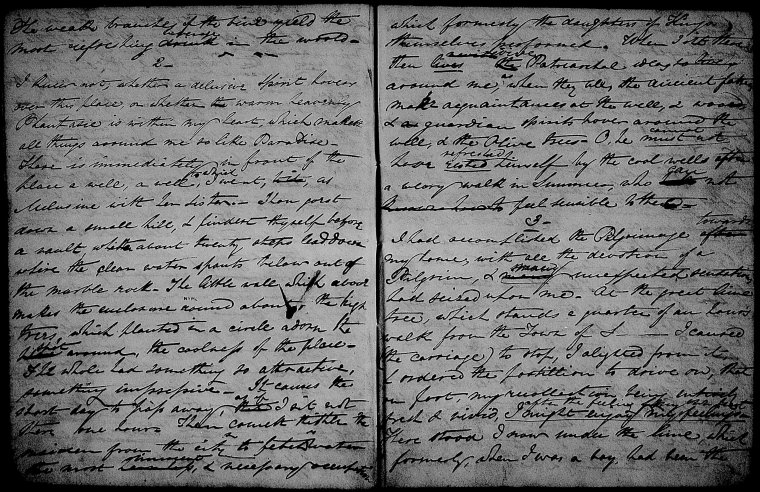 The weak branches of the vine yield the
most refreshing in the world—
2—
I know not, whether a delusive spirit hovers
over this place, or whether the warm heavenly
Phantasie is within my heart, which makes
all things around me so like Paradise—
There is immediately in front of the
place a well, a well, as
Melusine with her sisters.— Thou goest
down a small hill, & findest thyself before
a vault, about twenty steps lead down
where the clear water spouts below out of
the marble rock— The little wall which above
makes the enclosure round about, the high
trees, which planted in a circle adorn the
around, the coolness of the place—
The whole had something so attractive,
something impressive— It causes the
short day to pass away, I sit not
there one hour. Then cometh thither the
maiden from the city to fetch water
the most & necessary occupat
which formerly the daughters of Kings
themselves performed. When I sit there
then lives the Patriarchal idea so
around me, when they, all, the ancient fathers
make acquaintances at the well, & woo
& a guardian spirits hover around the
well, & the Olive trees— O, he must not
have refreshed himself by the cool wells after
a weary walk in Summer, who not
feel sensible to the
3—
I had accomplished the Pilgrimage towards
my home, with all the devotion of a
Pilgrim, & many unexpected sensations
had seized upon me— At the great lime
tree, which stands a quarter of an hours
walk from the Town of S—— I caused
the carriage to stop, I alighted from it
& ordered the postilion to drive on, that
on foot, my recollection being entirely
fresh & vivid, I might enjoy
There stood I now under the lime, which
formerly, when I was a boy, had been the